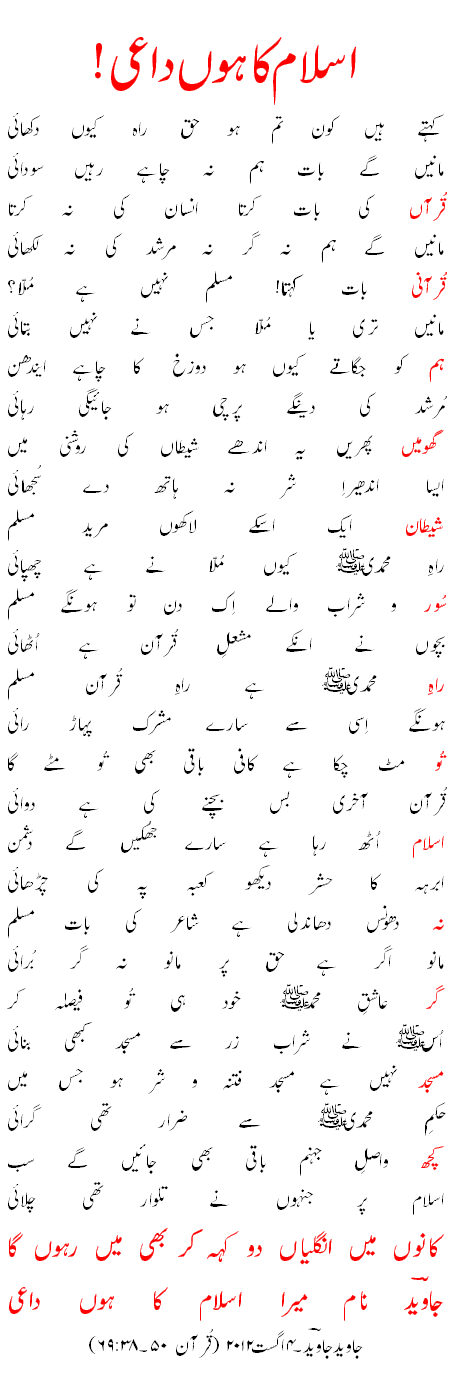 اسلام کا ہوں داعی !
کہتے ہیں کون تم ہو حق راہ کیوں دکھائی
مانیں گے بات ہم نہ چاہے رہیں سودائی
قُرآں کی بات کرتا انسان کی نہ کرتا
مانیں گے ہم نہ گر نہ مرشد کی نہ لکھائی
قُرآنی بات کہتا! مسلم نہیں ہے مُلّا؟
مانیں تری یا مُلّا جس نے نہیں بتائی
ہم کو جگاتے کیوں ہو دوزخ کا چاہے ایندھن
مُرشد کی دینگے پرچی ہو جائیگی رہائی
گھومیں پھریں یہ اندھے شیطاں کی روشنی میں
ایسا اندھیرا شر نہ ہاتھ دے سُجھائی
شیطان ایک اسکے لاکھوں مرید مسلم
راہِ محمدیﷺ کیوں مُلّا نے ہے چھپائی
سُور و شراب والے اِک دن تو ہونگے مسلم
بچوں نے انکے مشعلِ قُرآن ہے اُٹھائی
راہِ محمدیﷺ ہے راہِ قُرآن مسلم
ہونگے اِسی سے سارے مشرک پہاڑ رائی
تُو مٹ چکا ہے کافی باقی بھی تُو مٹے گا
قُرآن آخری بس بچنے کی ہے دوائی
اسلام اُٹھ رہا ہے سارے جھکیں گے دشمن
ابرہہ کا حشر دیکھو کعبہ پہ کی چڑھائی
نہ دھونس دھاندلی ہے شاعر کی بات مسلم
مانو اگر ہے حق پر مانو نہ گر بُرائی
گر عاشقِ محمدﷺ خود ہی تُو فیصلہ کر
اُسﷺ نے شراب زر سے مسجد کبھی بنائی
مسجد نہیں ہے مسجد فتنہ و شر ہو جس میں
حکمِ محمدیﷺ سے ضرار تھی گرائی
کچھ واصلِ جہنم باقی بھی جائیں گے سب
اسلام پر جنہوں نے تلوار تھی چلائی
کانوں میں انگلیاں دو کہہ کر بھی میں رہوں گا
جاوید نام میرا اسلام کا ہوں داعی
جاوید جاوید۔ ۴ اگست ۲۰۱۲ (قُرآن ۵۰۔۶۹:۳۸)